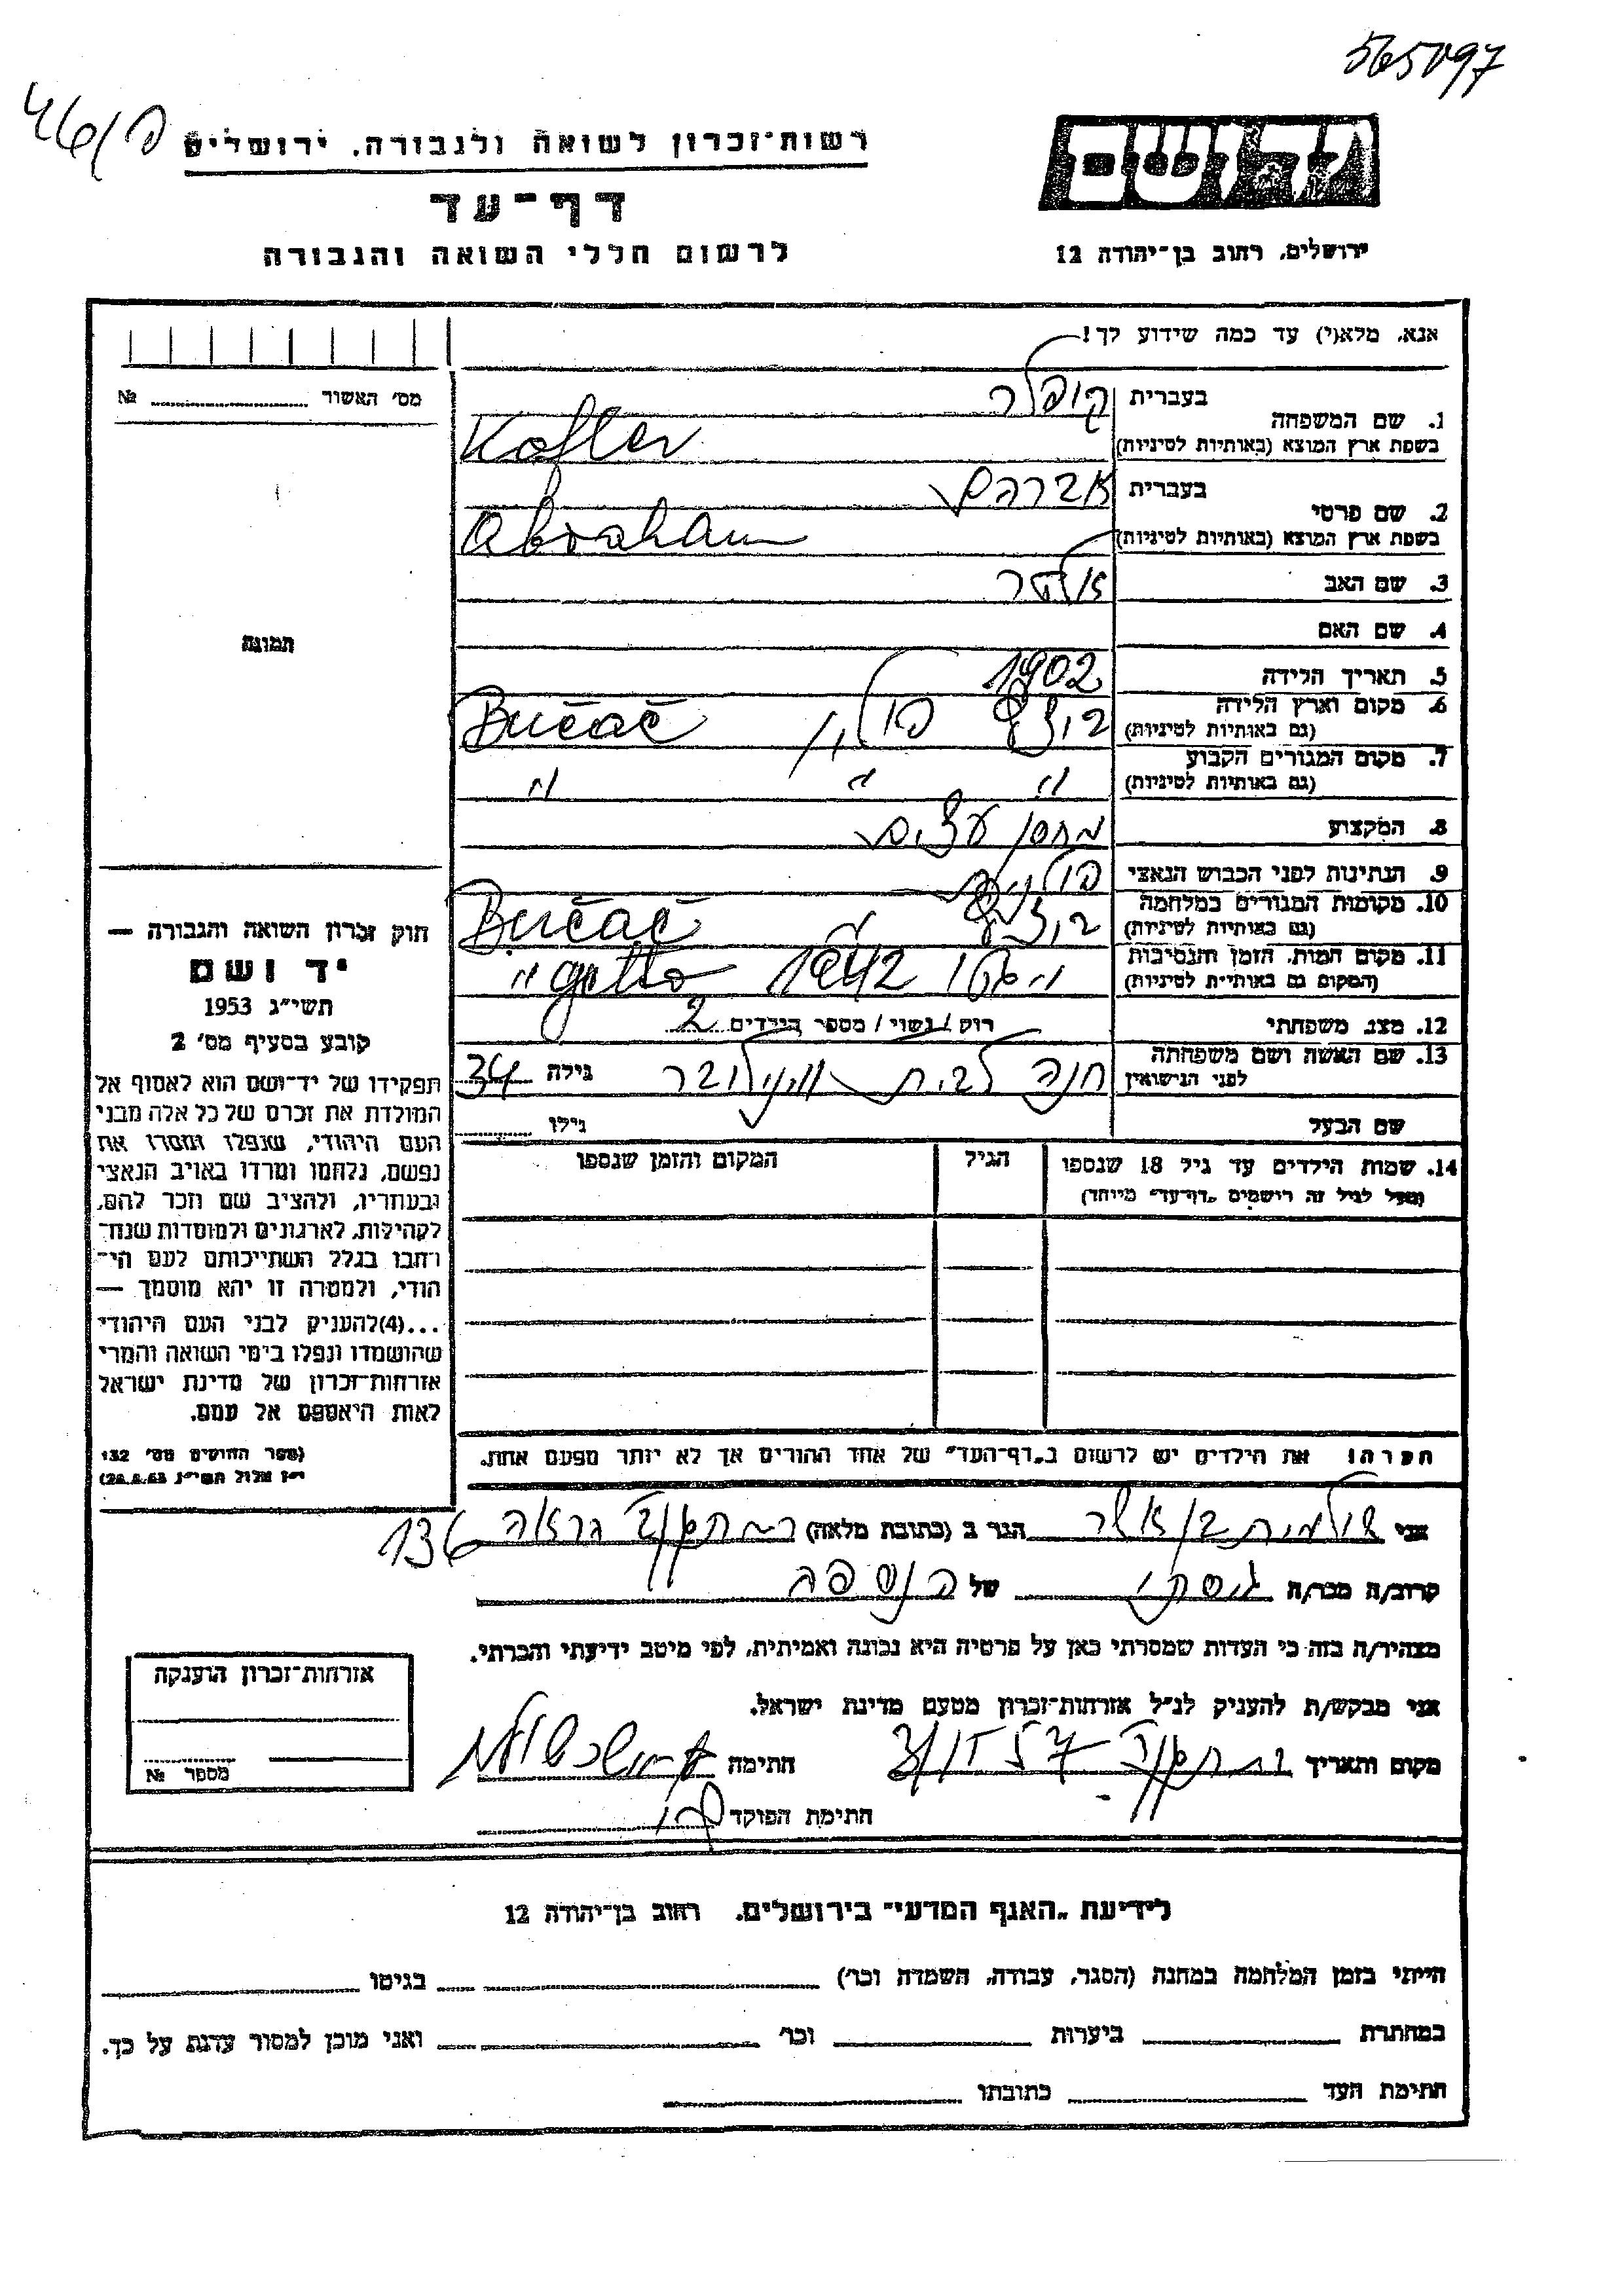 565097
46/פ
יד ושם
רשות־זכרון לשואה ולגבורה, ירושלים
דף־עד
לרשום חללי השואה והגבורה
ירושלים, רחוב בן־יהודה 12
אנא, מלא(י) עד כמה שידוע לך!
מס׳ האשור № 
1. שם המשפחה בעברית קופלר
בשפת ארץ המוצא (באותיות לטיניות) Kofler
2. שם פרטי בעברית אברהם
בשפת ארץ המוצא (באותיות לטיניות) Abraham
3. שם האב
4. שם האם
תמונה
5. תאריך הלידה 1902
6. מקום וארץ הלידה (גם באותיות לטיניות) בוצץ פולין Bučač
7. מקום המגורים הקבוע (גם באותיות לטיניות) " " "
8. המקצוע מחסן עצים
9. הנתינות לפני הכבוש הנאצי פולנית
10. מקומות המגורים במלחמה (גם באותיות לטיניות) בוצץ Bučač
11. מקום המות, הזמן והנסיבות (המקום גם באותיות לטיניות) 1942 getto "
12. מצב משפחתי רווק / נשוי / מספר הילדים 2
13. שם האשה ושם משפחתה לפני הנישואין חנה לבית גילה 34
שם הבעל גילו
14. שמות הילדים עד גיל 18 שנספו הגיל המקום והזמן שנספו
(מעל לגיל זה רושמים „דף־עד״ מיוחד)
הערה: את הילדים יש לרשום ב„דף־העד״ של אחד ההורים אך לא יותר מפעם אחת.
חוק זכרון השואה והגבורה —
יד ושם
תשי״ג 1953
קובע בסעיף מס׳ 2
תפקידו של יד־ושם הוא לאסוף אל
המולדת את זכרם של כל אלה מבני
העם היהודי, שנפלו ומסרו את
נפשם, נלחמו ומרדו באויב הנאצי
ובעוזריו, ולהציב שם וזכר להם,
לקהילות, לארגונים ולמוסדות שנח־
רבו בגלל השתייכותם לעם הי־
הודי, ולמטרה זו יהא מוסמך —
...(4)להעניק לבני העם היהודי
שהושמדו ונפלו בימי השואה והמרי
אזרחות־זכרון של מדינת ישראל
לאות היאספם אל עמם.
(ספר החוקים מס׳ 132
י״ז אלול תשי״ג 28.8.53)
אני שולמית בן אשר הגר ב (כתובת מלאה) רמת גן 136
קרוב/ה מכר/ה גיסתו של הנספה
מצהיר/ה בזה כי העדות שמסרתי כאן על פרטיה היא נכונה ואמיתית, לפי מיטב ידיעתי והכרתי.
אני מבקש/ת להעניק לנ״ל אזרחות־זכרון מטעם מדינת ישראל.
מקום ותאריך רמת גן חתימה
חתימת הפוקד
אזרחות־זכרון הוענקה
מספר №
לידיעת „האגף המדעי״ בירושלים, רחוב בן־יהודה 12
הייתי בזמן המלחמה במחנה (הסגר, עבודה, השמדה וכו׳) בגיטו
במחתרת ביערות וכו׳ ואני מוכן למסור עדות על כך.
חתימת העד כתובתו